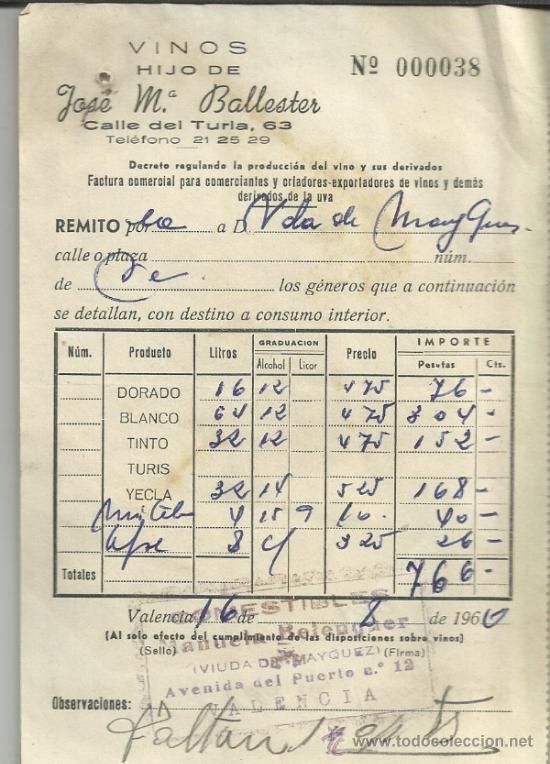 VINOS
HIJO DE
Nº 000038
José Mª Ballester
Calle del Turia, 63
Teléfono 21 25 29
Decreto regulando la producción del vino y sus derivados
Factura comercial para comerciantes y criadores-exportadores de vinos y demás
derivados de la uva
REMITO por a D. Vda de
calle o plaza núm.
de los géneros que a continuación
se detallan, con destino a consumo interior.
Núm. Producto Litros GRADUACION Precio IMPORTE
Alcohol Licor Pesetas Cts.
DORADO 16 12 475 76 -
BLANCO 64 12 475 304 -
TINTO 32 12 475 152 -
TURIS
YECLA 32 14 525 168 -
4 15 9 10. 40 -
8 325 26 -
Totales 766 -
Valencia, 16 de 8 de 1960
COMESTIBLES
(Al solo efecto del cumplimiento de las disposiciones sobre vinos)
Manuela Belenguer
(Sello) (Firma)
(VIUDA DE MAYQUEZ)
Avenida del Puerto n.º 12
VALENCIA
Observaciones:
Faltan
www.todocoleccion.net